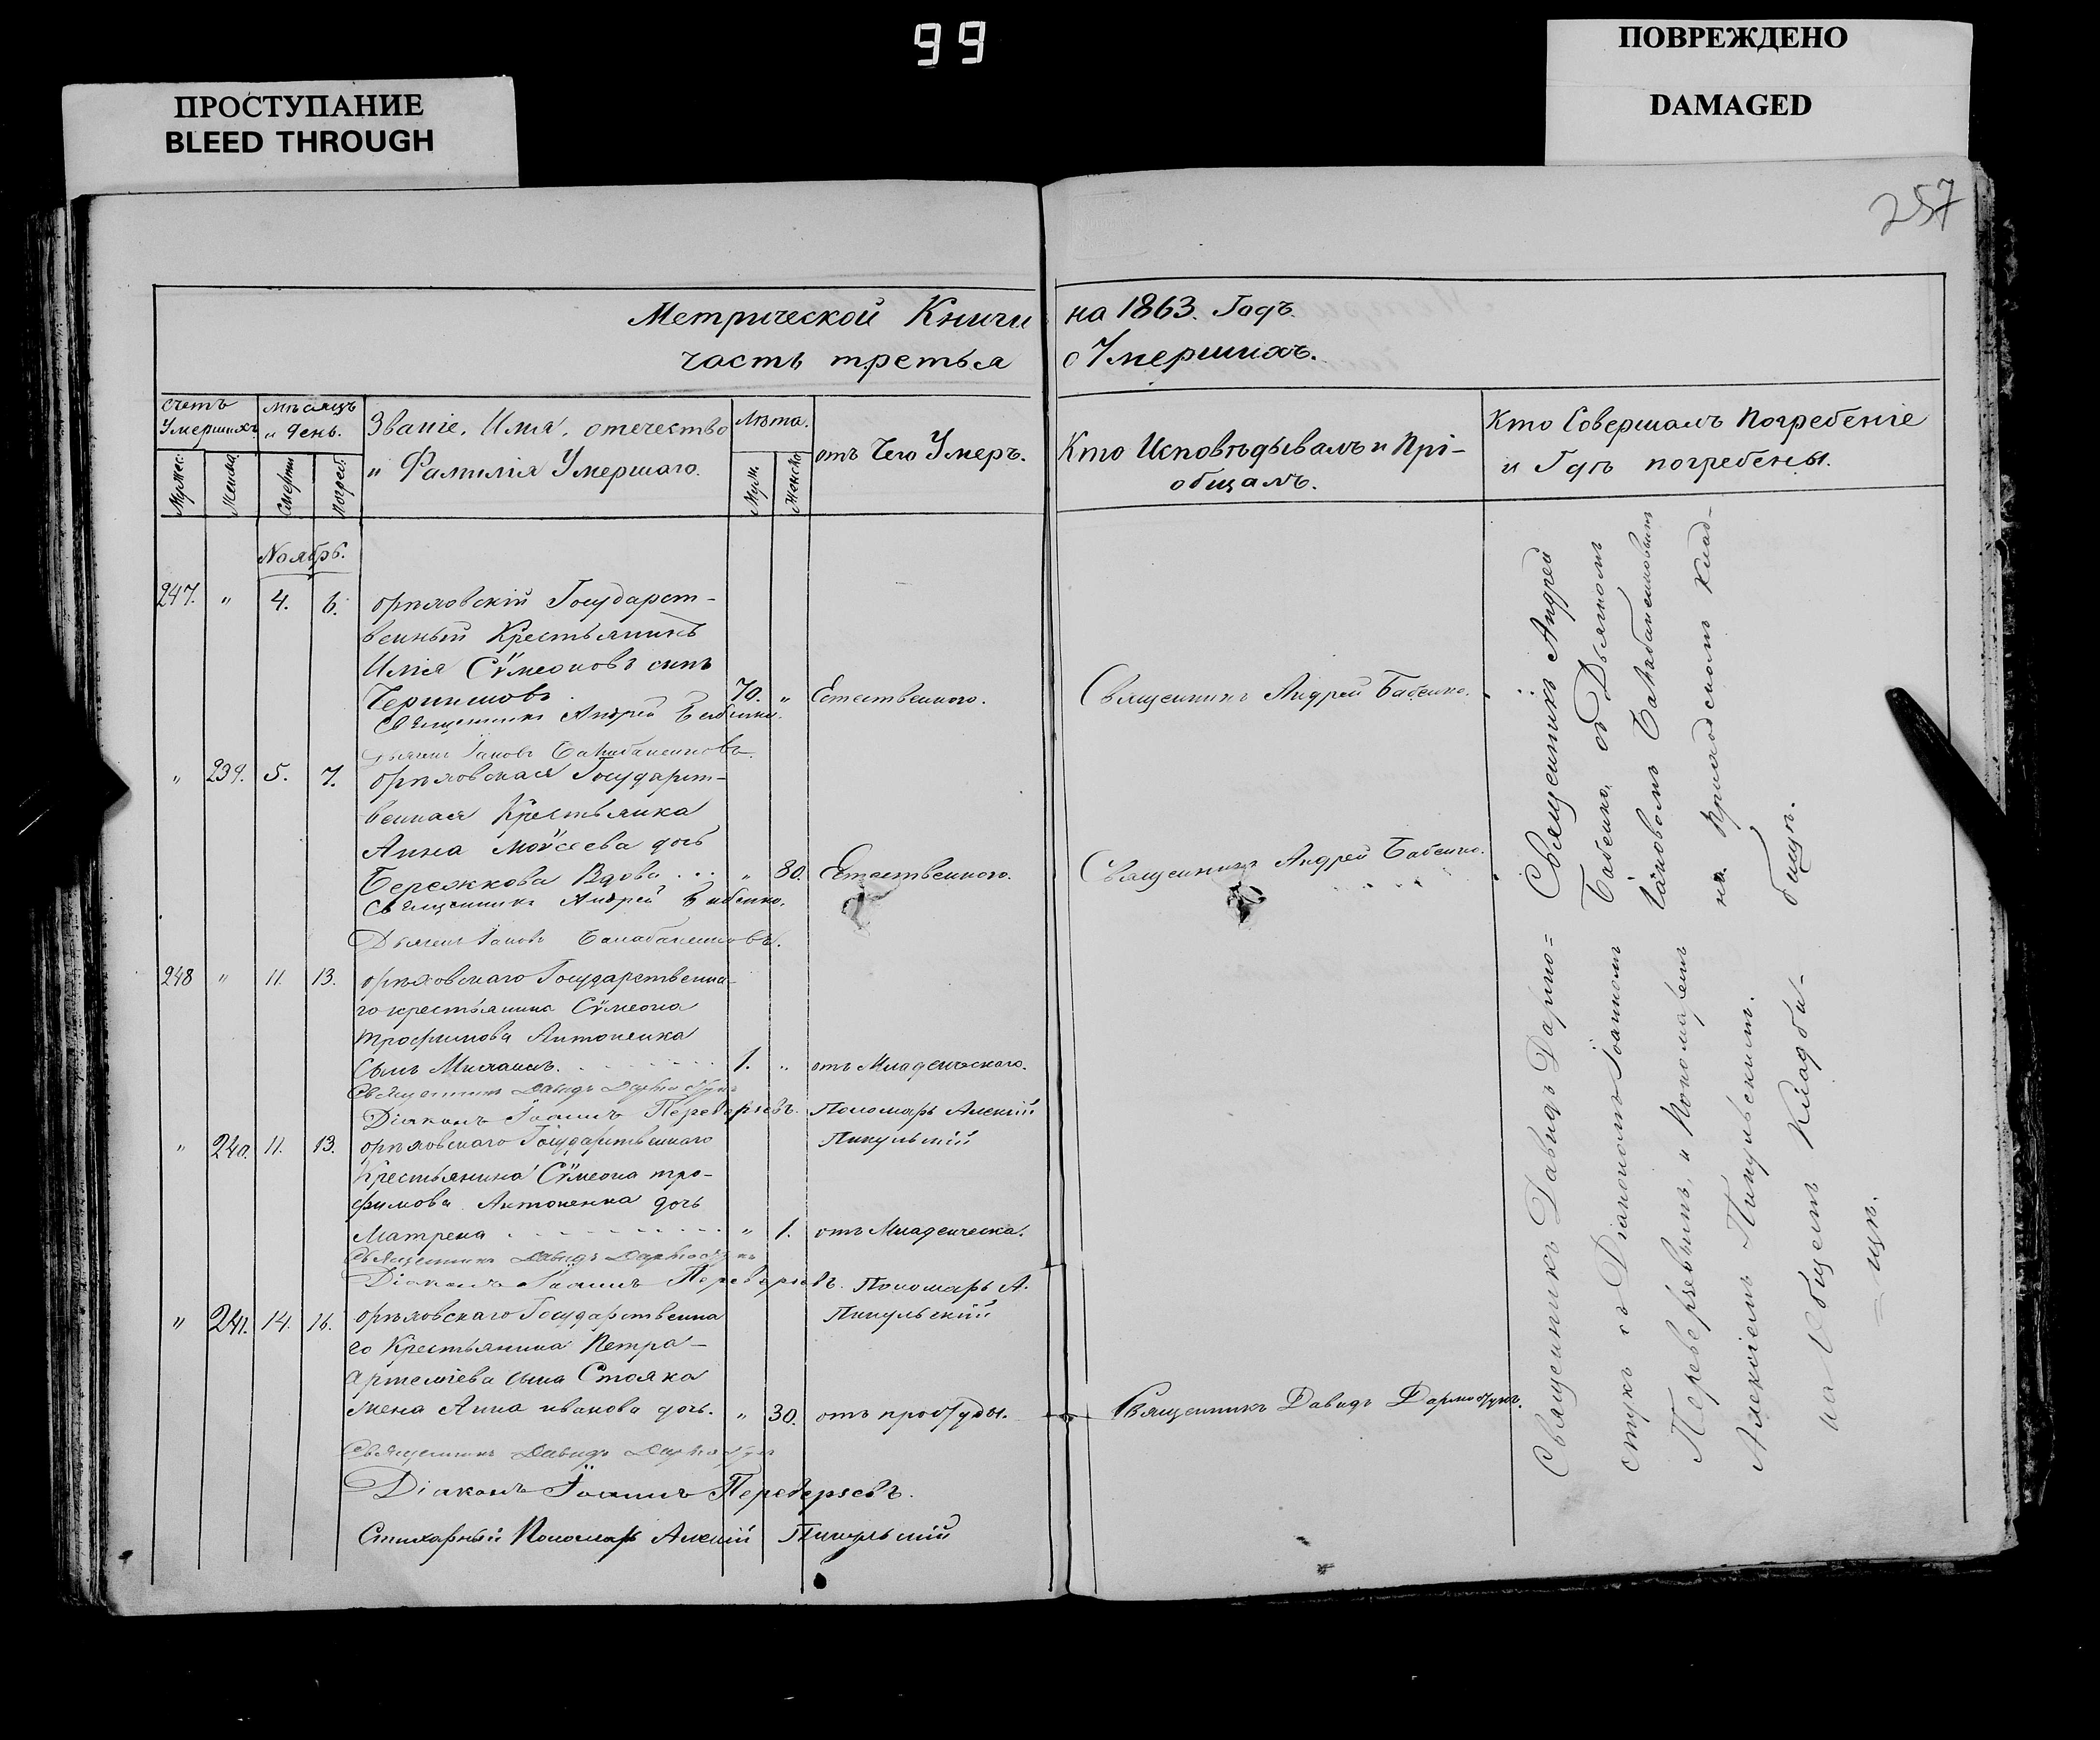 99
ПРОСТУПАНИЕ
BLEED THROUGH
ПОВРЕЖДЕНО
DAMAGED
257
Метрической Книги на 1863. Годъ.
часть третья о Умершихъ.
счетъ Умершихъ
Мужес.
Женска
мѣсяцъ и день.
Смерти
Погреб.
Званіе, Имя, отечество
и Фамилія Умершаго.
Лѣта.
Муж.
Женско
отъ Чего Умеръ.
Кто Исповѣдывалъ и Прі-
общалъ.
Кто Совершалъ Погребеніе
и Гдѣ погребены.
Ноябрь.
247. " 4. 6. орѣховскій Государст-
венный Крестьянинъ
Илія Сѵмеоновъ сынъ
70. " Естественного. Священникъ Андрей Бабенко.
Священникъ Андрей Бабенко.
Дьячекъ Іаковъ Балабаненковъ.
" 239. 5. 7. орѣховская Государст-
венная Крестьянка
Анна Моѵсеева дочь
Бережкова Вдова " 80. Естественного. Священникъ Андрей Бабенко.
Священникъ Андрей Бабенко.
Дьячекъ Іаковъ Балабаненковъ.
248 " 11. 13. орѣховскаго Государственна-
го крестьянина Сѵмеона
трофимова Антоненка
Сынъ Михаилъ. 1. " отъ Младенческаго.
Священникъ Давидъ Дармостукъ
Діаконъ Іоаннъ Переверзевъ. Пономарь Алексій
Пикульскій
" 240. 11. 13. орѣховскаго Государственнаго
Крестьянина Сѵмеона тро-
фимова Антоненка дочь
Матрена " 1. отъ Младенческа.
Священникъ Давидъ Дармостукъ
Діаконъ Іоаннъ Переверзевъ. Пономарь А.
Пикульскій
" 241. 14. 16. орѣховскаго Государственна
го Крестьянина Петра
Артеміева сына Стояка
жена Анна иванова дочь. " 30. отъ простуды. Священникъ Давидъ Дармостукъ.
Священникъ Давидъ Дармостукъ
Діаконъ Іоаннъ Переверзевъ.
Стихарный Пономарь Алексій Пикульскій
Священникъ Андрей
Бабенко, съ Дьячкомъ
Іаковомъ Балабаненковымъ
на Приходскомъ Клад-
бищѣ.
Священникъ Давидъ Дармо=
стукъ съ Діакономъ Іоанномъ
Переверзевымъ, и Пономаремъ
Алексіемъ Пикульскимъ.
на Общемъ Кладби-
=щѣ.